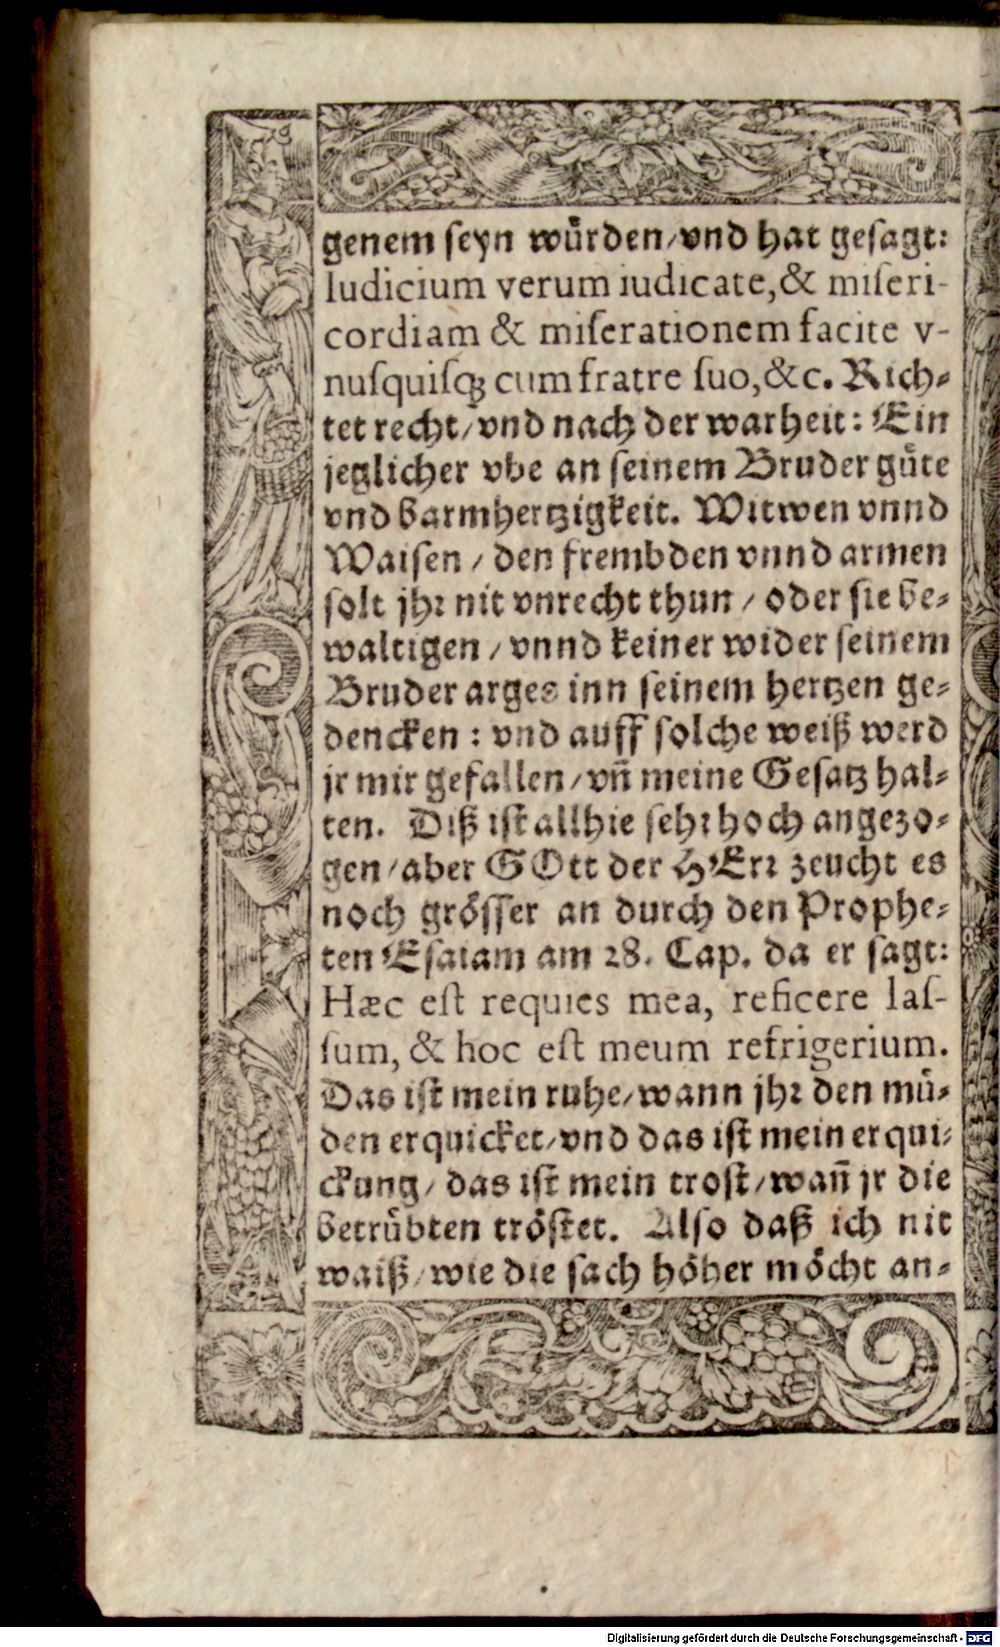 genem seyn würden/vnd hat gesagt:
Iudicium verum iudicate,& miseri-
cordiam & miserationem facite v-
nusquisqꝫ cum fratre suo,&c. Rich-
tet recht/vnd nach der warheit: Ein
jeglicher vbe an seinem Bruder güte
vnd barmhertzigkeit. Witwen vnnd
Waisen / den frembden vnnd armen
solt jhr nit vnrecht thun / oder sie be-
waltigen / vnnd keiner wider seinem
Bruder arges inn seinem hertzen ge-
dencken : vnd auff solche weiß werd
jr mir gefallen/vñ meine Gesatz hal-
ten. Diß ist allhie sehr hoch angezo-
gen/aber GOtt der HErr zeucht es
noch grösser an durch den Prophe-
ten Esaiam am 28. Cap. da er sagt:
Hæc est requies mea, reficere las-
sum, & hoc est meum refrigerium.
Das ist mein ruhe/wann jhr den mü-
den erquicket/vnd das ist mein erqui-
ckung/ das ist mein trost/wañ jr die
betrübten tröstet. Also daß ich nit
waiß/wie die sach höher möcht an-
Digitalisierung gefördert durch die Deutsche Forschungsgemeinschaft - DFG